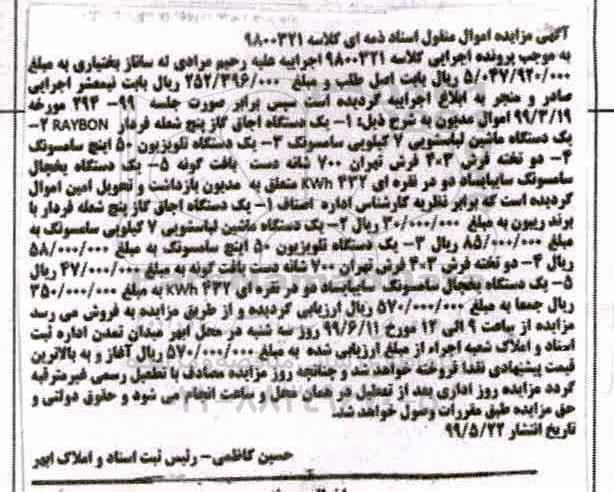 آگهی مزایده اموال منقول اسناد ذمه ای کلاسه ۹۸۰۰۳۲۱
به موجب پرونده اجرایی کلاسه ۹۸۰۰۳۲۱ اجراییه علیه رحیم مرادی له ساناز بختیاری به مبلغ
۵/۰۴۷/۹۲۰/۰۰۰ ریال بابت اصل طلب و مبلغ ۲۵۲/۳۹۶/۰۰۰ ریال بابت نیمعشر اجرایی
صادر و منجر به ابلاغ اجراییه گردیده است سپس برابر صورت جلسه ۹۹- ۲۹۴ مورخه
۹۹/۳/۱۹ اموال مدیون به شرح ذیل: ۱- یک دستگاه اجاق گاز پنج شعله فردار RAYBON ۲-
یک دستگاه ماشین لباسشویی ۷ کیلویی سامسونگ ۳- یک دستگاه تلویزیون ۵۰ اینچ سامسونگ
۴- دو تخته فرش ۳*۴ فرش تهران ۷۰۰ شانه دست بافت گونه ۵- یک دستگاه یخچال
سامسونگ سایبایساد دو در نقره ای ۴۳۲ KWh متعلق به مدیون بازداشت و تحویل امین اموال
گردیده است که برابر نظریه کارشناسی اداره اصناف ۱- یک دستگاه اجاق گاز پنج شعله فردار با
برند ریبون به مبلغ ۳۰/۰۰۰/۰۰۰ ریال ۲- یک دستگاه ماشین لباسشویی ۷ کیلویی سامسونگ به
مبلغ ۸۵/۰۰۰/۰۰۰ ریال ۳- یک دستگاه تلویزیون ۵۰ اینچ سامسونگ به مبلغ ۵۸/۰۰۰/۰۰۰
ریال ۴- دو تخته فرش ۳*۴ فرش تهران ۷۰۰ شانه دست بافت گونه به مبلغ ۴۷/۰۰۰/۰۰۰ ریال
۵- یک دستگاه یخچال سامسونگ سایبایساد دو در نقره ای ۴۳۲ KWh به مبلغ ۳۵۰/۰۰۰/۰۰۰
ریال جمعا به مبلغ ۵۷۰/۰۰۰/۰۰۰ ریال ارزیابی گردیده و از طریق مزایده به فروش می رسد
مزایده از ساعت ۹ الی ۱۲ مورخ ۹۹/۶/۱۱ روز سه شنبه در محل ابهر میدان تمدن اداره ثبت
اسناد و املاک شعبه اجراء از مبلغ ارزیابی شده به مبلغ ۵۷۰/۰۰۰/۰۰۰ ریال آغاز و به بالاترین
قیمت پیشنهادی نقدا فروخته خواهد شد و چنانچه روز مزایده مصادف با تعطیل رسمی غیرمترقبه
گردد مزایده روز اداری بعد از تعطیل در همان محل و ساعت انجام می شود و حقوق دولتی و
حق مزایده طبق مقررات وصول خواهد شد.
تاریخ انتشار ۹۹/۵/۲۲
حسین کاظمی- رئیس ثبت اسناد و املاک ابهر